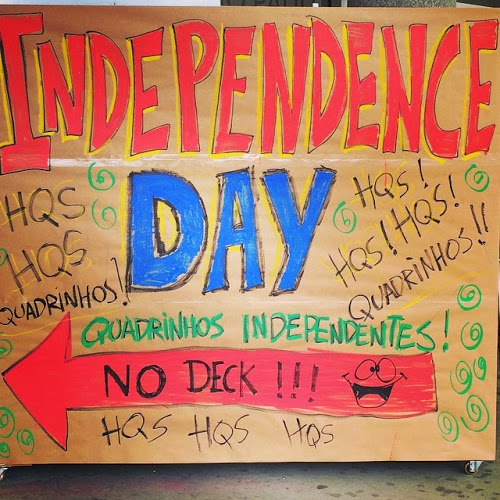 INDEPENDENCE
DAY
HQS
HQS
QUADRINHOS!
HQS!
HQS! HQS!
QUADRINHOS!!
QUADRINHOS INDEPENDENTES!
NO DECK!!!
HQS HQS HQS